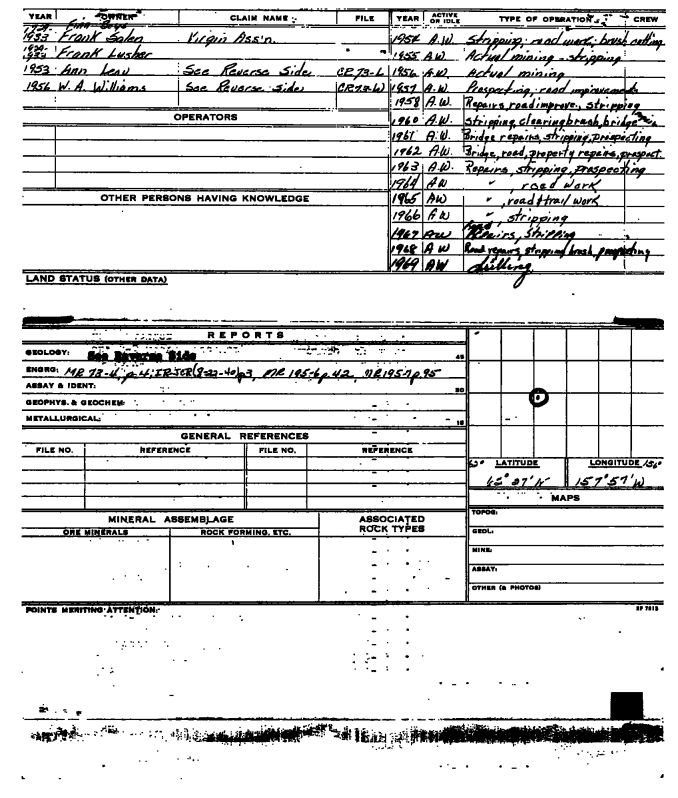 YEAR OWNER CLAIM NAME FILE YEAR ACTIVE OR IDLE TYPE OF OPERATION CREW
Frank Salen Virgin Ass'n. 1954 A.W. Stripping; road work; brush cutting
Frank Lusher 1955 A.W. Actual mining - stripping
1953 Ann See Reverse Side 1956 A.W. Actual mining
1956 W. A. Williams See Reverse Side 1957 A.W. Prospecting, road improvements
1958 A.W. Repairs, road improve., stripping
OPERATORS
1960 A.W. Stripping, clearing brush, bridge
1961 A.W. Bridge repairs, stripping, prospecting
1962 A.W. Bridge, road, property repairs, prospect.
1963 A.W. Repairs, stripping, prospecting
1964 AW " , road work
OTHER PERSONS HAVING KNOWLEDGE
1965 AW " , road & trail work
1966 AW " , stripping
1967 AW Repairs, Stripping
1968 AW Road repairs, stripping brush, prospecting
1969 AW
LAND STATUS (OTHER DATA)
REPORTS
GEOLOGY: See Reverse Side
ENGRG: MR 73-4, p-4; IR-JCR(8-22-40)p3, MR 195-6 p.42, MR195-7 p.95
ASSAY & IDENT:
GEOPHYS. & GEOCHEM:
METALLURGICAL:
GENERAL REFERENCES
FILE NO. REFERENCE FILE NO. REFERENCE
LATITUDE LONGITUDE 156°
157°57'W
MAPS
TOPOG:
GEOL:
MINE:
ASSAY:
OTHER (& PHOTOS)
MINERAL ASSEMBLAGE ASSOCIATED ROCK TYPES
ORE MINERALS ROCK FORMING, ETC.
POINTS MERITING ATTENTION: